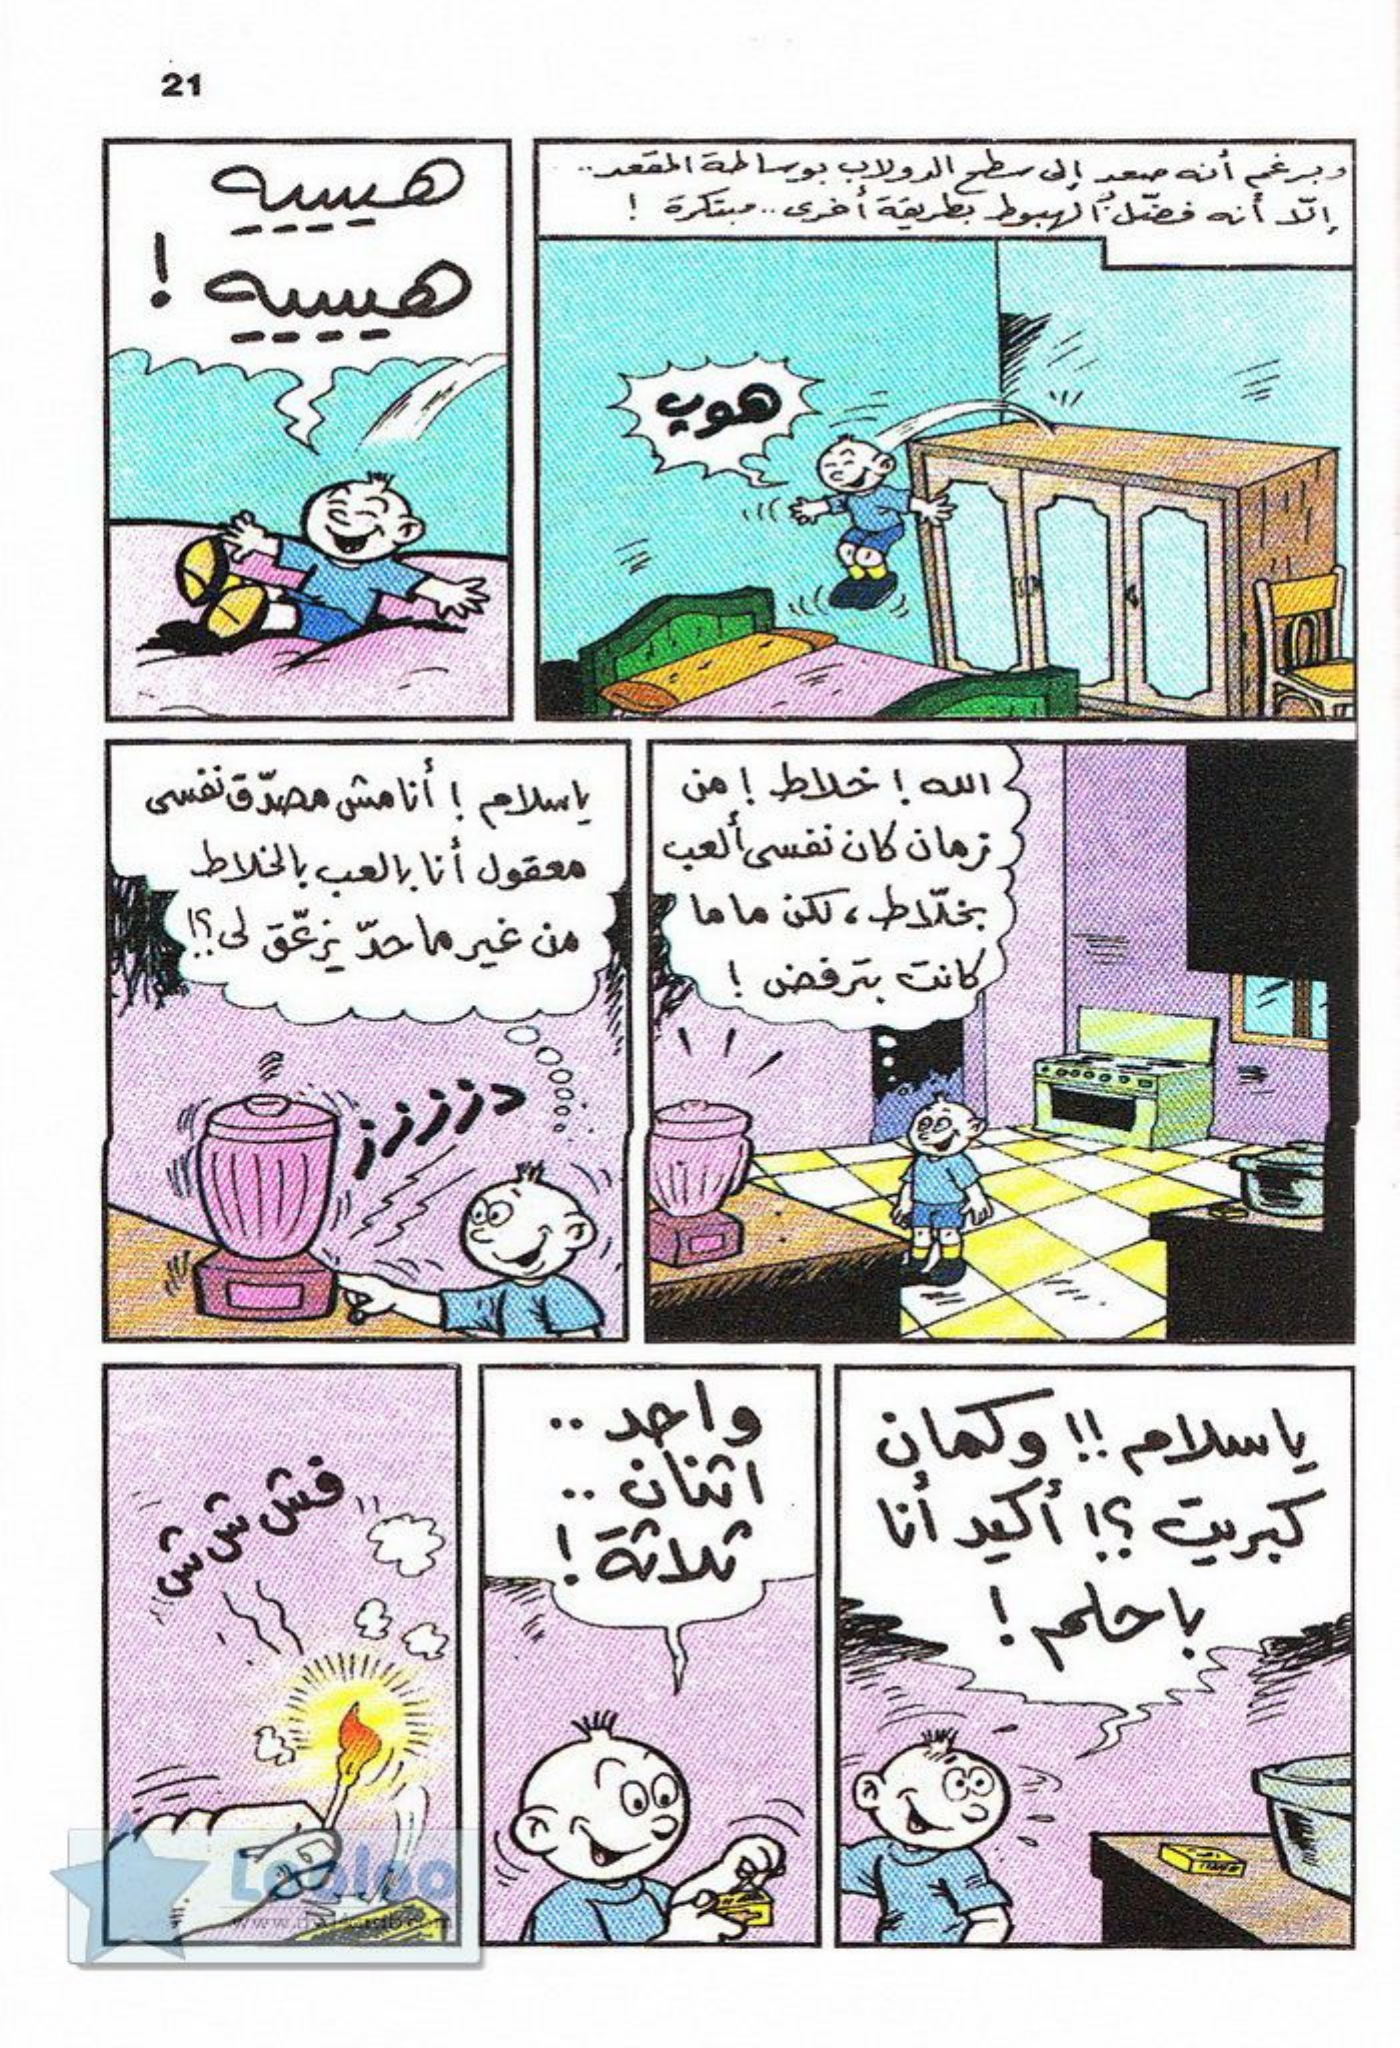 21
وبرغم أنه صعد إلى سطح الدولاب بوساطة المقعد..
إلّا أنه فضّل الهبوط بطريقة أخرى.. مبتكرة !
هوب
هييييه
هييييه !
الله ! خلاط ! من
زمان كان نفسى ألعب
بخلّاط ، لكن ماما
كانت بترفض !
ياسلام ! أنا مش مصدّق نفسى
معقول أنا بالعب بالخلاط
من غير ما حدّ يزعّق لى ؟!
دزززز
ياسلام !! وكمان
كبريت ؟! أكيد أنا
باحلم !
واحد ..
اثنان ..
ثلاثة !
فش ش ش
Looloo